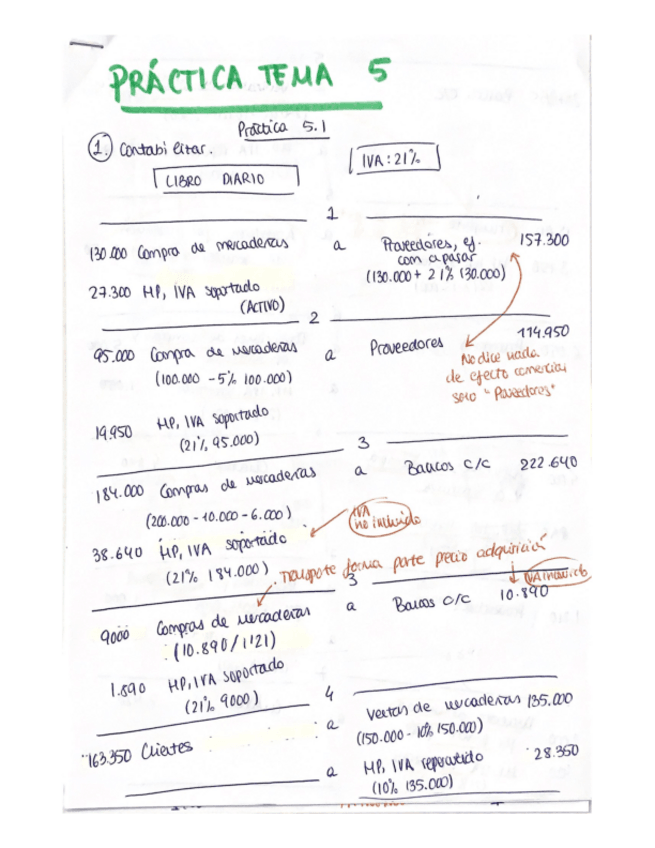 PRÁCTICA TEMA 5
Práctica 5.1
1. Contabilizar.
IVA: 21%
LIBRO DIARIO
1
130.000 Compra de mercaderías a Proveedores, ef. 157.300
com. a pagar
(130.000 + 21% 130.000)
27.300 HP, IVA soportado
(ACTIVO)
2
95.000 Compra de mercaderías a Proveedores 114.950
(100.000 - 5% 100.000)
No dice nada
de efecto comercial
solo "Proveedores"
19.950 HP, IVA soportado
(21% 95.000)
3
184.000 Compras de mercaderías a Bancos c/c 222.640
(200.000 - 10.000 - 6.000)
IVA
no incluido
38.640 HP, IVA soportado
(21% 184.000)
Transporte forma parte precio adquisición
3
IVA incluido
9000 Compras de mercaderías a Bancos c/c 10.890
(10.890/1'21)
1.890 HP, IVA soportado
(21% 9000)
4
a Ventas de mercaderías 135.000
(150.000 - 10% 150.000)
163.350 Clientes
a HP, IVA repercutido 28.350
(10% 135.000)